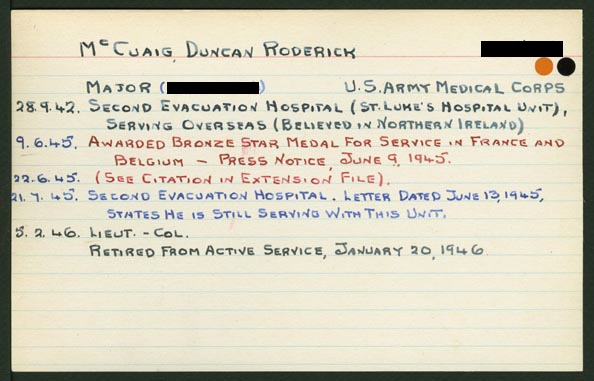 McCUAIG, DUNCAN RODERICK
MAJOR ( ) U.S. ARMY MEDICAL CORPS
28.9.42. SECOND EVACUATION HOSPITAL (ST. LUKE'S HOSPITAL UNIT),
SERVING OVERSEAS (BELIEVED IN NORTHERN IRELAND)
9.6.45. AWARDED BRONZE STAR MEDAL FOR SERVICE IN FRANCE AND
BELGIUM – PRESS NOTICE, JUNE 9, 1945.
22.6.45. (SEE CITATION IN EXTENSION FILE).
21.7.45. SECOND EVACUATION HOSPITAL. LETTER DATED JUNE 13, 1945,
STATES HE IS STILL SERVING WITH THIS UNIT.
5.2.46. LIEUT.-COL.
RETIRED FROM ACTIVE SERVICE, JANUARY 20, 1946